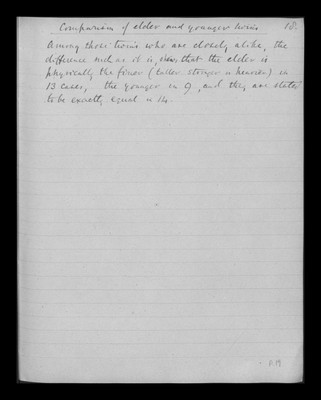 Comparison of elder and younger twins 18.
Among those twins who are closely alike, the
difference such as it is, shows that the elder is
physically the finer (taller stronger or heavier) in
13 cases, the younger in 9, and they are stated
to be exactly equal in 14.